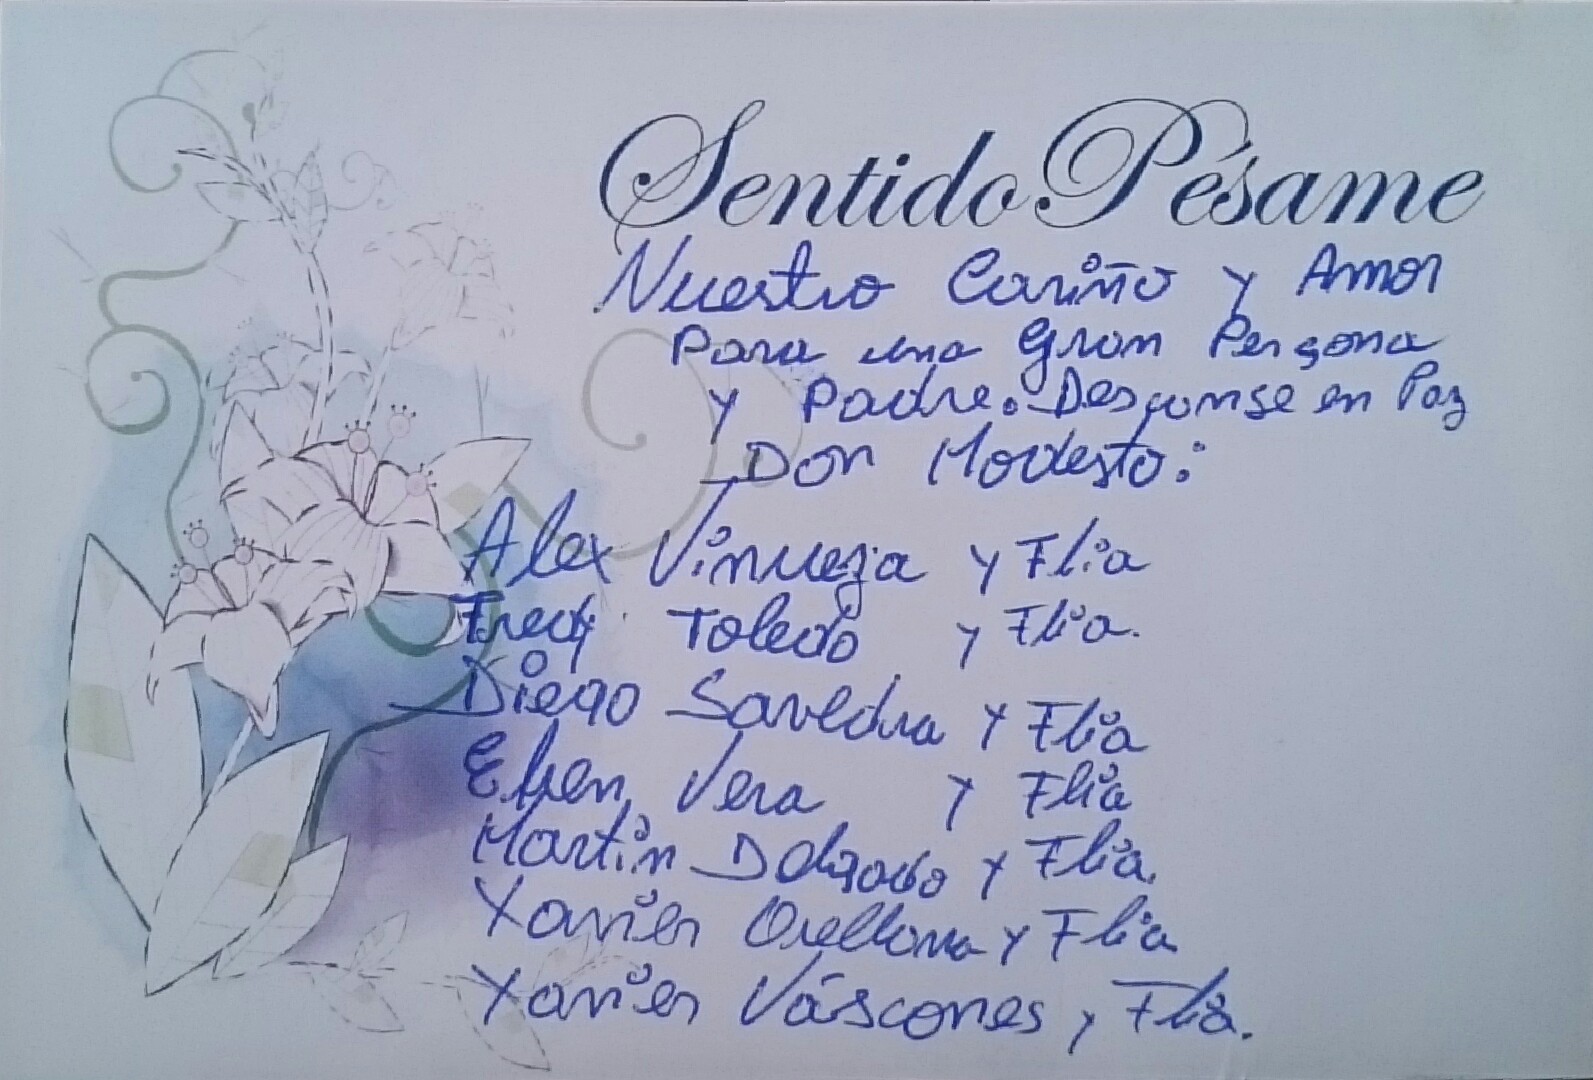 Sentido Pésame
Nuestro Cariño y Amor
Para una Gran Persona
y Padre. Descanse en Paz
Don Modesto:
Alex Vinueza y Flia
Fredy Toledo y Flia.
Diego Savedra y Flia
Efren Vera y Flia
Martin Delgado y Flia.
Xavier Orellana y Flia
Xavier Váscones y Flia.